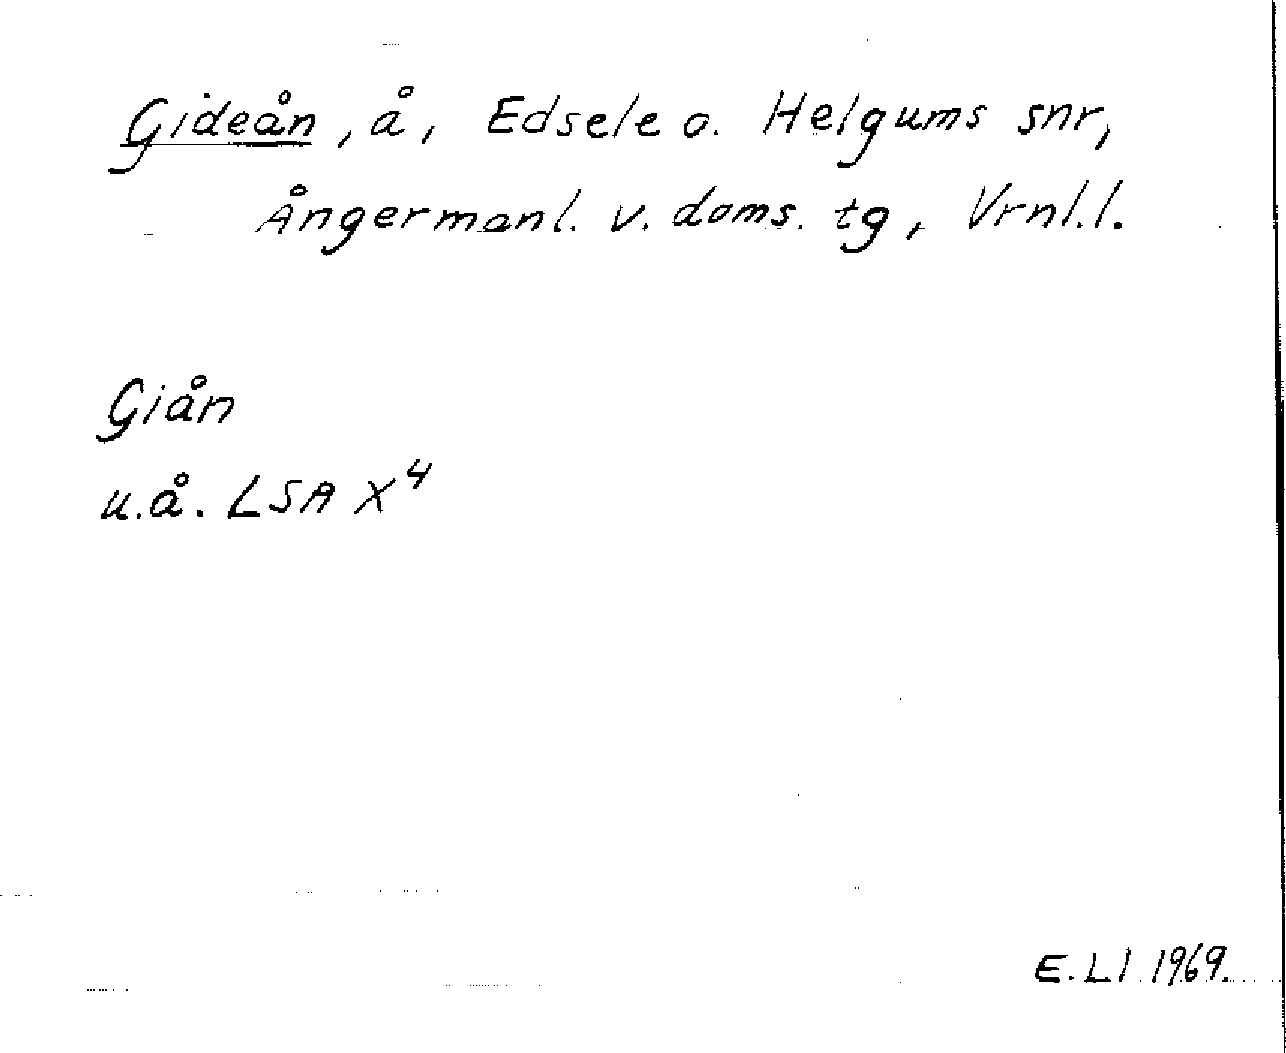 Gideån, å, Edsele o. Helgums snr,
Ångermanl. v. doms. tg, Vrnl.l.
Giån
u.å. LSA X⁴
E.Ll 1969.